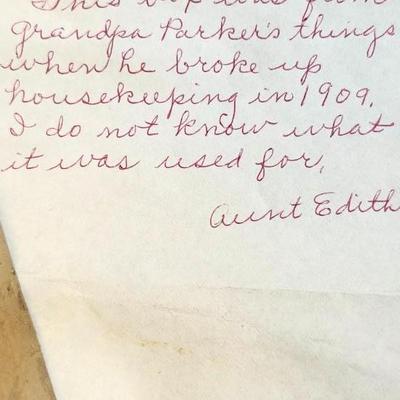 This box was from
Grandpa Parker's things
when he broke up
housekeeping in 1909.
I do not know what
it was used for.
Aunt Edith